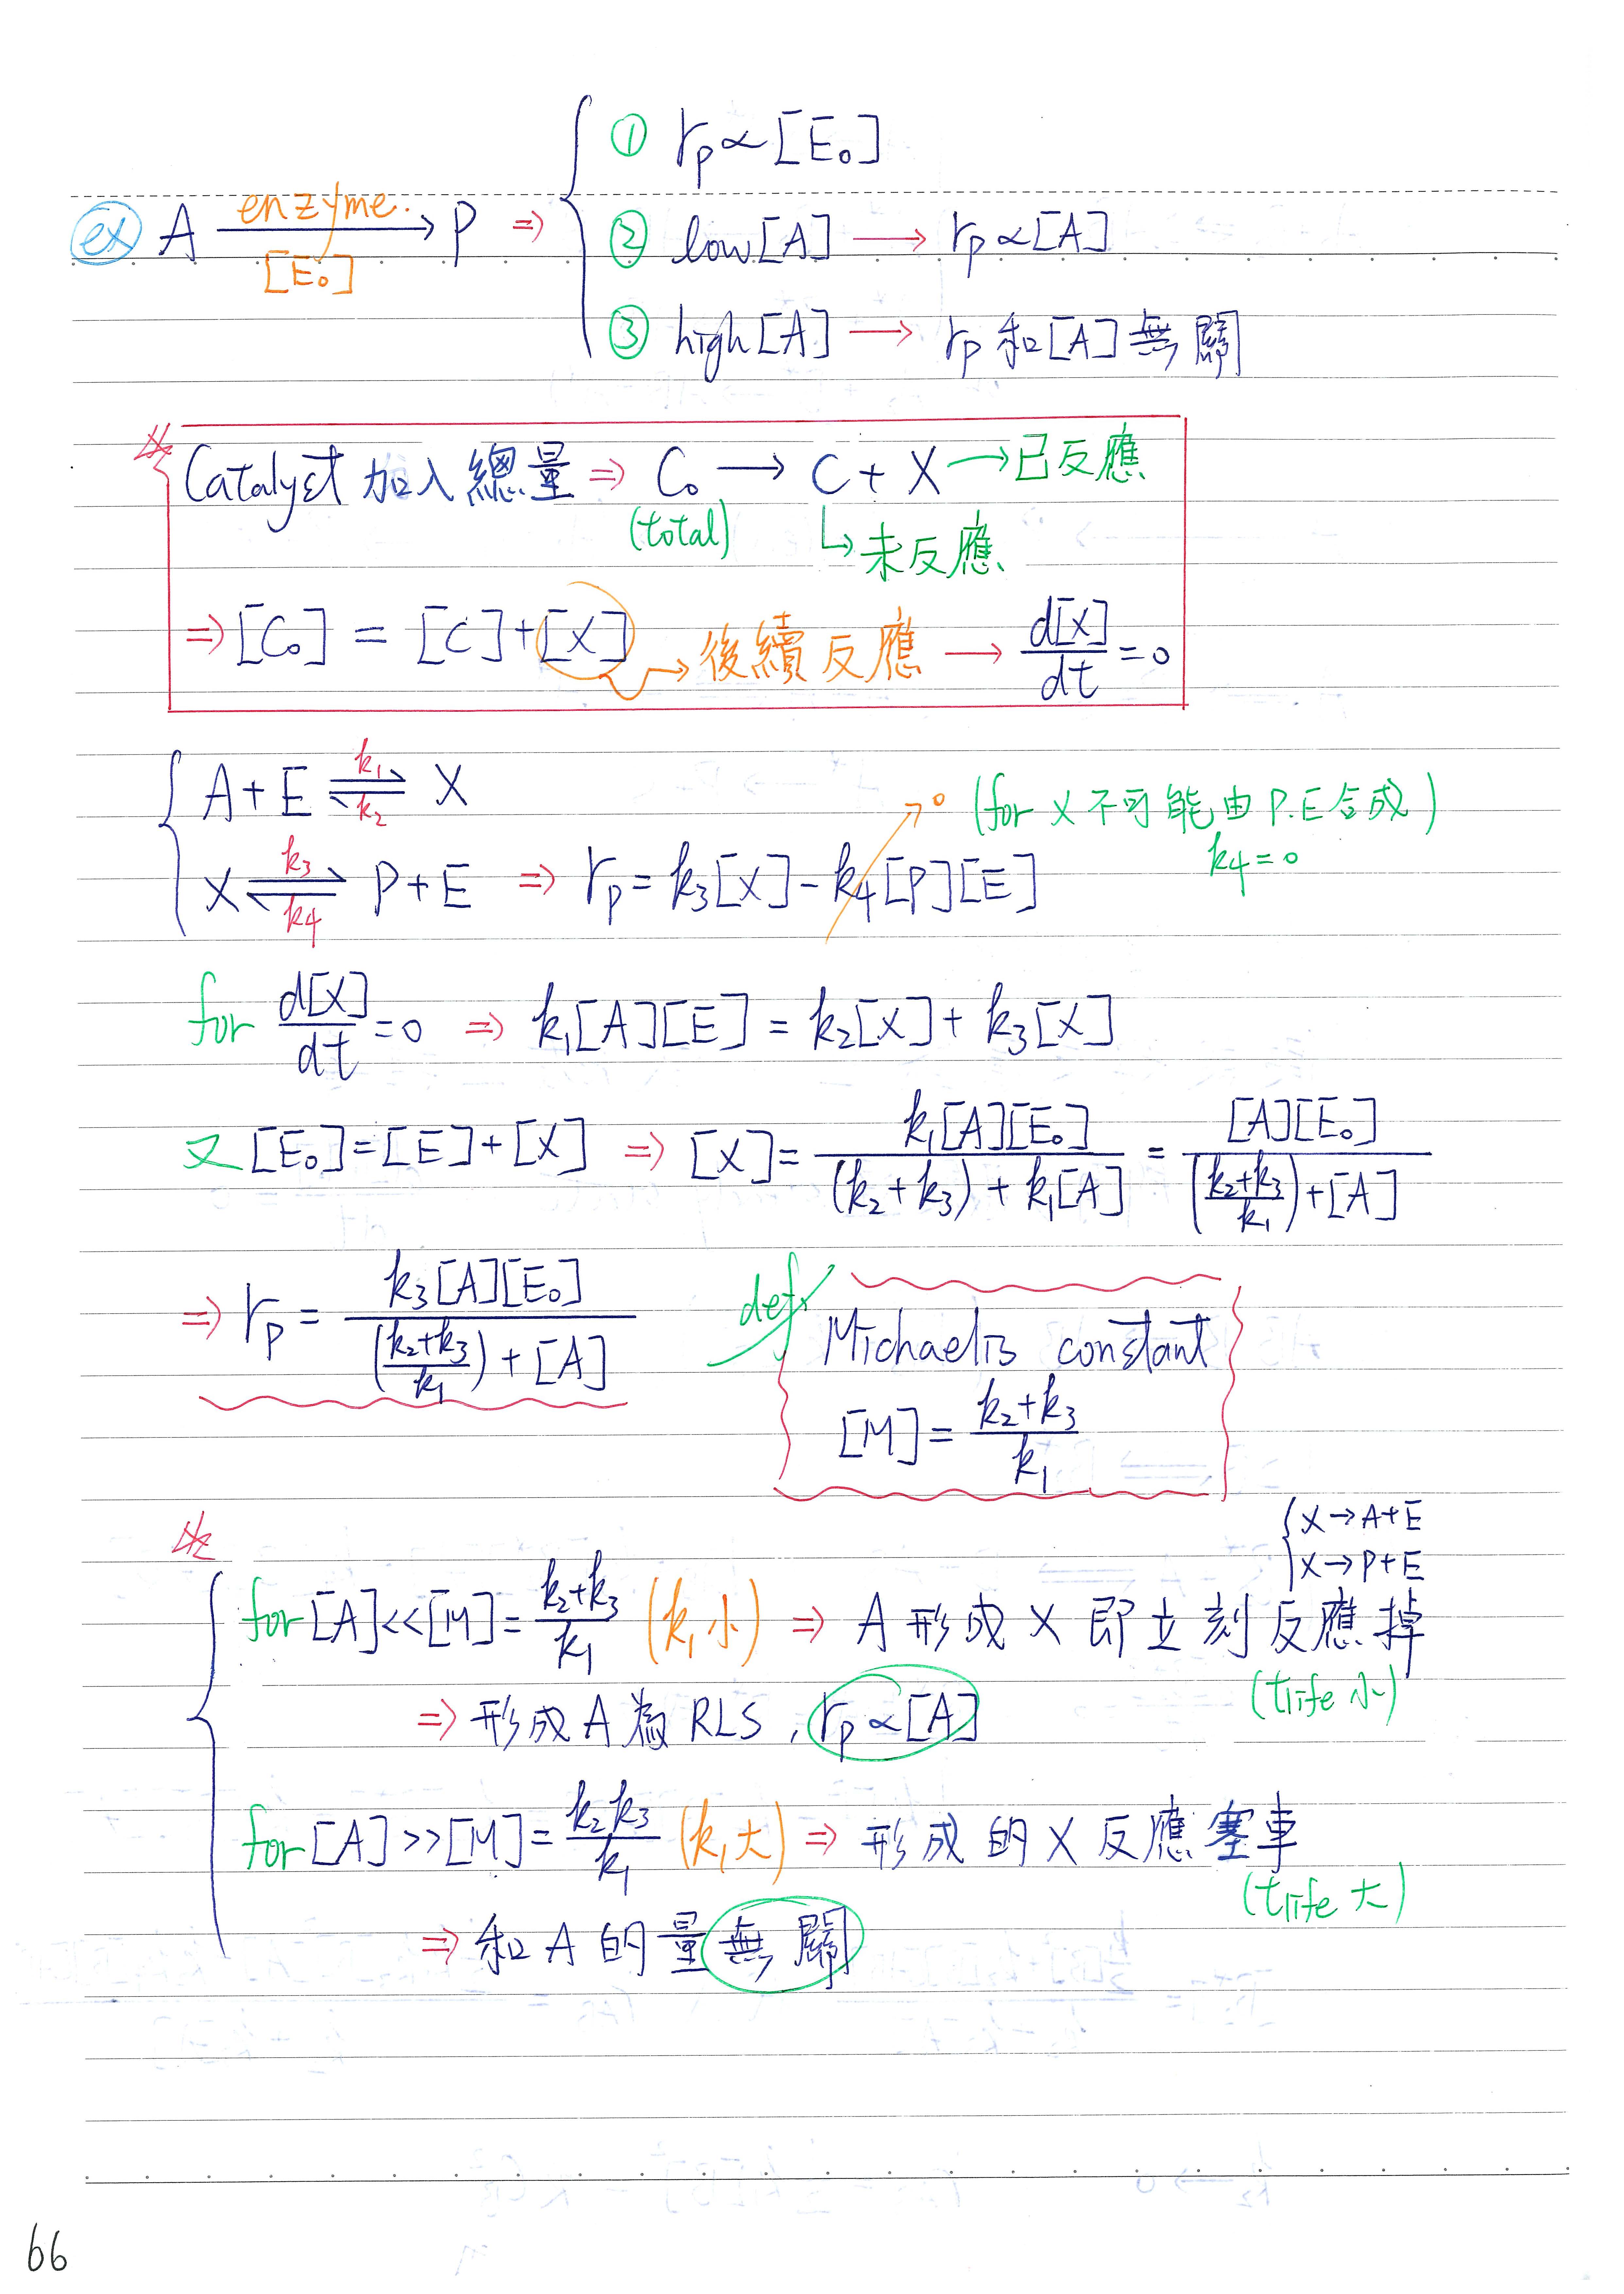 ① rp ∝ [E₀]
ex A enzyme. → P ⇒ ② low [A] → rp ∝ [A]
[E₀]
③ high [A] → rp 和 [A] 無關
Catalyst 加入總量 ⇒ C₀ → C + X → 已反應
(total) ↳ 未反應
⇒ [C₀] = [C] + [X] → 後續反應 → d[X]/dt = 0
A + E ⇌ X k₁ k₂
→ 0 (for X 不可能由 P.E 合成)
k₄ = 0
X ⇌ P + E k₃ k₄ ⇒ rp = k₃[X] - k₄[P][E]
for d[X]/dt = 0 ⇒ k₁[A][E] = k₂[X] + k₃[X]
又 [E₀] = [E] + [X] ⇒ [X] = k₁[A][E₀] / (k₂+k₃) + k₁[A] = [A][E₀] / (k₂+k₃/k₁) + [A]
⇒ rp = k₃[A][E₀] / (k₂+k₃/k₁) + [A]
def. Michaelis constant
[M] = k₂+k₃/k₁
X → A+E
X → P+E
for [A] << [M] = k₂+k₃/k₁ (k₁小) ⇒ A 形成 X 即立刻反應掉
(tlife 小)
⇒ 形成 A 為 RLS, rp ∝ [A]
for [A] >> [M] = k₂k₃/k₁ (k₁大) ⇒ 形成的 X 反應塞車
(tlife 大)
⇒ 和 A 的量無關
66